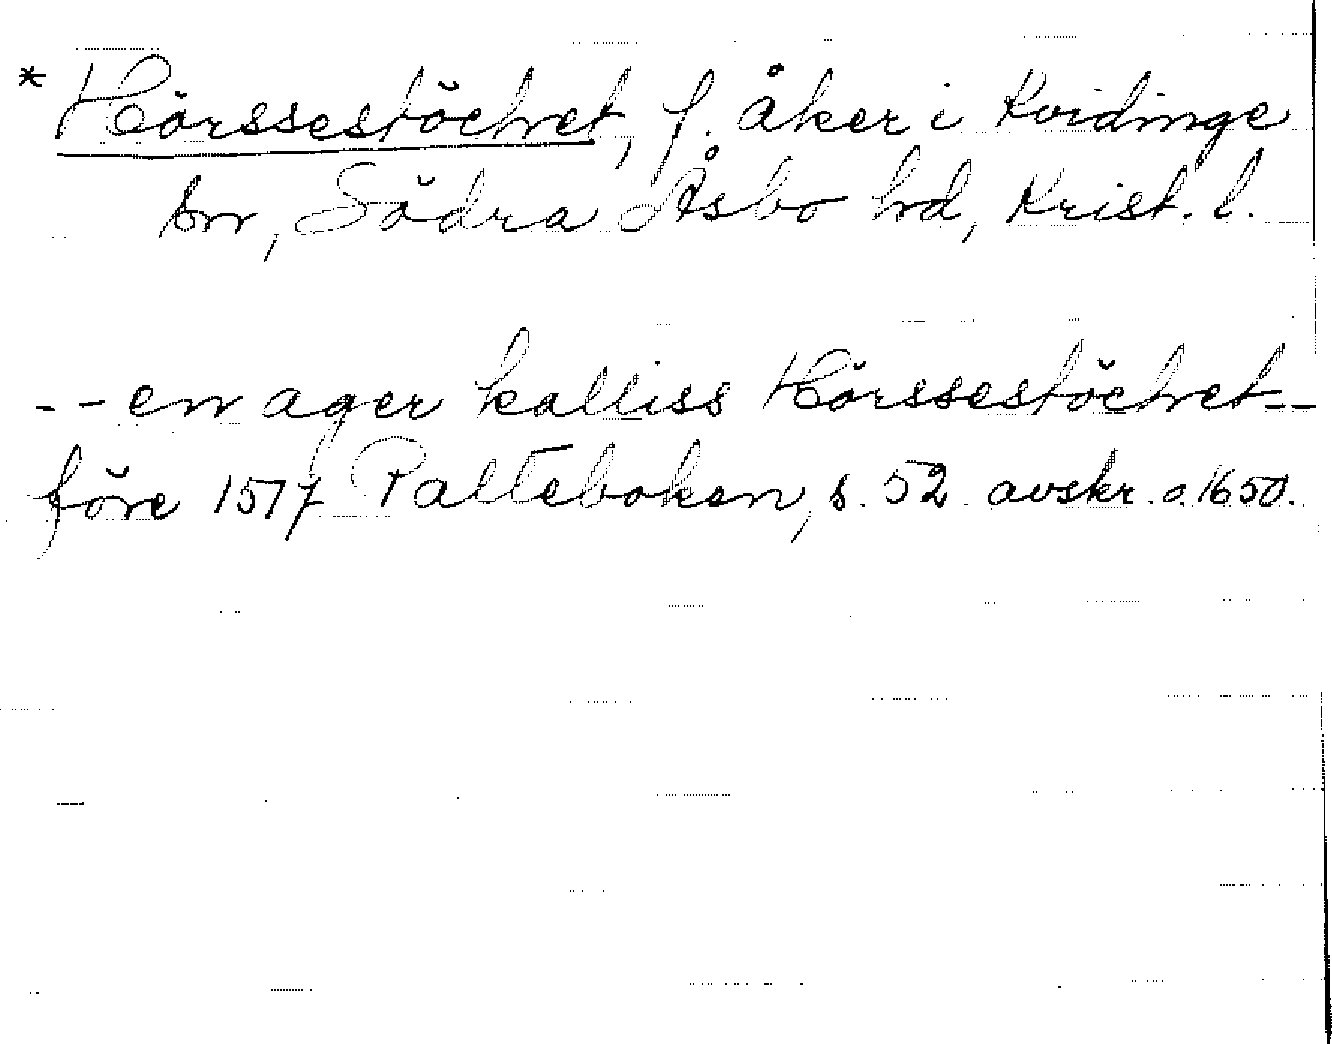 * Hörssestöchet, f. åker i Kvidinge
sn, Södra Åsbo hd, Krist. l.
-- en ager kalliss Hörssestöchet --
före 1517 Palteboken, s. 52 avskr. o. 1650.